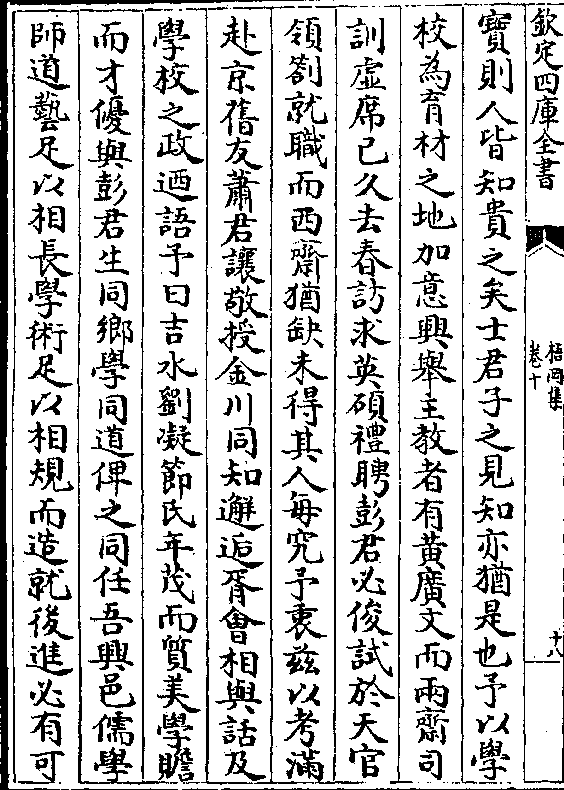 欽定四庫全書
梧岡集
卷十
十八
寳則人皆知貴之矣士君子之見知亦猶是也予以學
校為育材之地加意興舉主教者有黄廣文而兩齋司
訓虛席已久去春訪求英碩禮聘彭君必俊試於天官
領劄就職而西齋猶缺未得其人每究予衷兹以考滿
赴京舊友蕭君讓敬授金川同知邂逅胥會相與話及
學校之政迺語予曰吉水劉凝節氏年茂而質美學贍
而才優與彭君生同鄉學同道俾之同任吾興邑儒學
師道藝足以相長學術足以相規而造就後進必有可